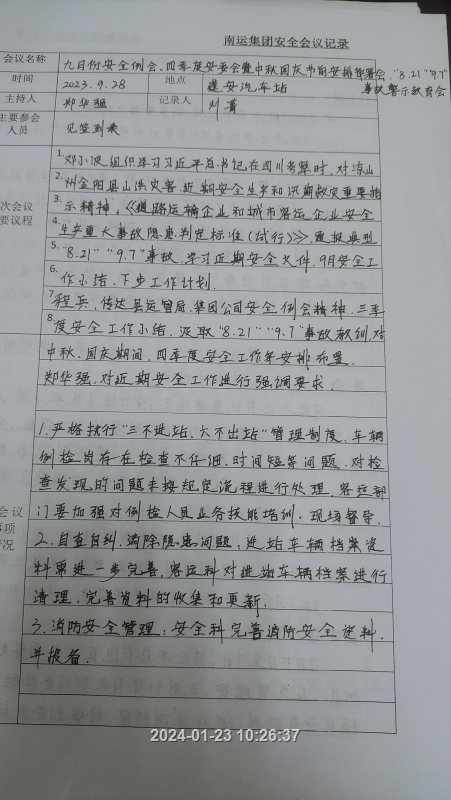 南运集团安全会议记录
会议名称 九月份安全例会、四季度安委会暨中秋国庆节前安排部署会、"8.21""9.7"
事故警示教育会
时间 2023.9.28 地点 蓬安汽车站
主持人 郑华强 记录人 刘菁
主要参会
人员 见签到表
1. 邓小波组织学习习近平总书记在四川考察时,对凉山
2. 州金阳县山洪灾害近期安全生产和汛期救灾重要指
次会议
要议程
3. 示精神,《道路运输企业和城市客运企业安全
4. 生产重大事故隐患判定标准(试行)》、通报典型
5. "8.21""9.7"事故、学习近期安全文件、9月安全工
6. 作小结、下步工作计划.
7. 程兵,传达县运管局、集团公司安全例会精神、三季
8. 度安全工作小结、汲取"8.21""9.7"事故教训,对
中秋、国庆期间、四季度安全工作年安排布置.
郑华强,对近期安全工作进行强调要求.
1. 严格执行"三不进站、六不出站"管理制度.车辆
例检岗存在检查不仔细、时间短等问题.对检
查发现的问题未按规定流程进行处理.客运部
门要加强对例检人员业务技能培训、现场督导.
会议
事项
情况
2. 自查自纠、消除隐患问题:进站车辆档案资
料需进一步完善,客运科对进站车辆档案进行
清理.完善资料的收集和更新.
3. 消防安全管理:安全科完善消防安全资料.
并报备.
2024-01-23 10:26:37